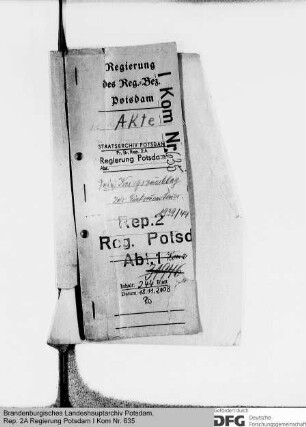 Regierung
des Reg.-Bez.
Potsdam
Akte
I Kom Nr. 635
STAATSARCHIV POTSDAM
Pr. Br. Rep. 2A
Regierung Potsdam
Abt.
1939/44
Rep.2
Reg. Potsd
Abt.1
Inhalt: 244 Blatt
Datum: 18.11.2008
Brandenburgisches Landeshauptarchiv Potsdam,
Rep. 2A Regierung Potsdam I Kom Nr. 635
Gefördert durch
DFG Deutsche
Forschungsgemeinschaft